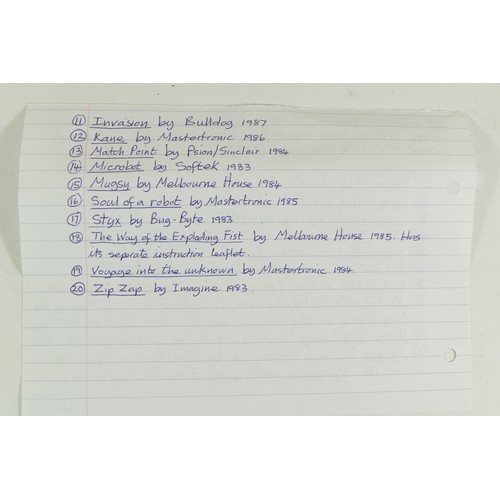 11 Invasion by Bulldog 1987
12 Kane by Mastertronic 1986
13 Match Point by Psion/Sinclair 1984
14 Microbot by Softek 1983
15 Mugsy by Melbourne House 1984
16 Soul of a robot by Mastertronic 1985
17 Styx by Bug-Byte 1983
18 The Way of the Exploding Fist by Melbourne House 1985. Has
its separate instruction leaflet.
19 Voyage into the unknown by Mastertronic 1984.
20 Zip Zap by Imagine 1983.